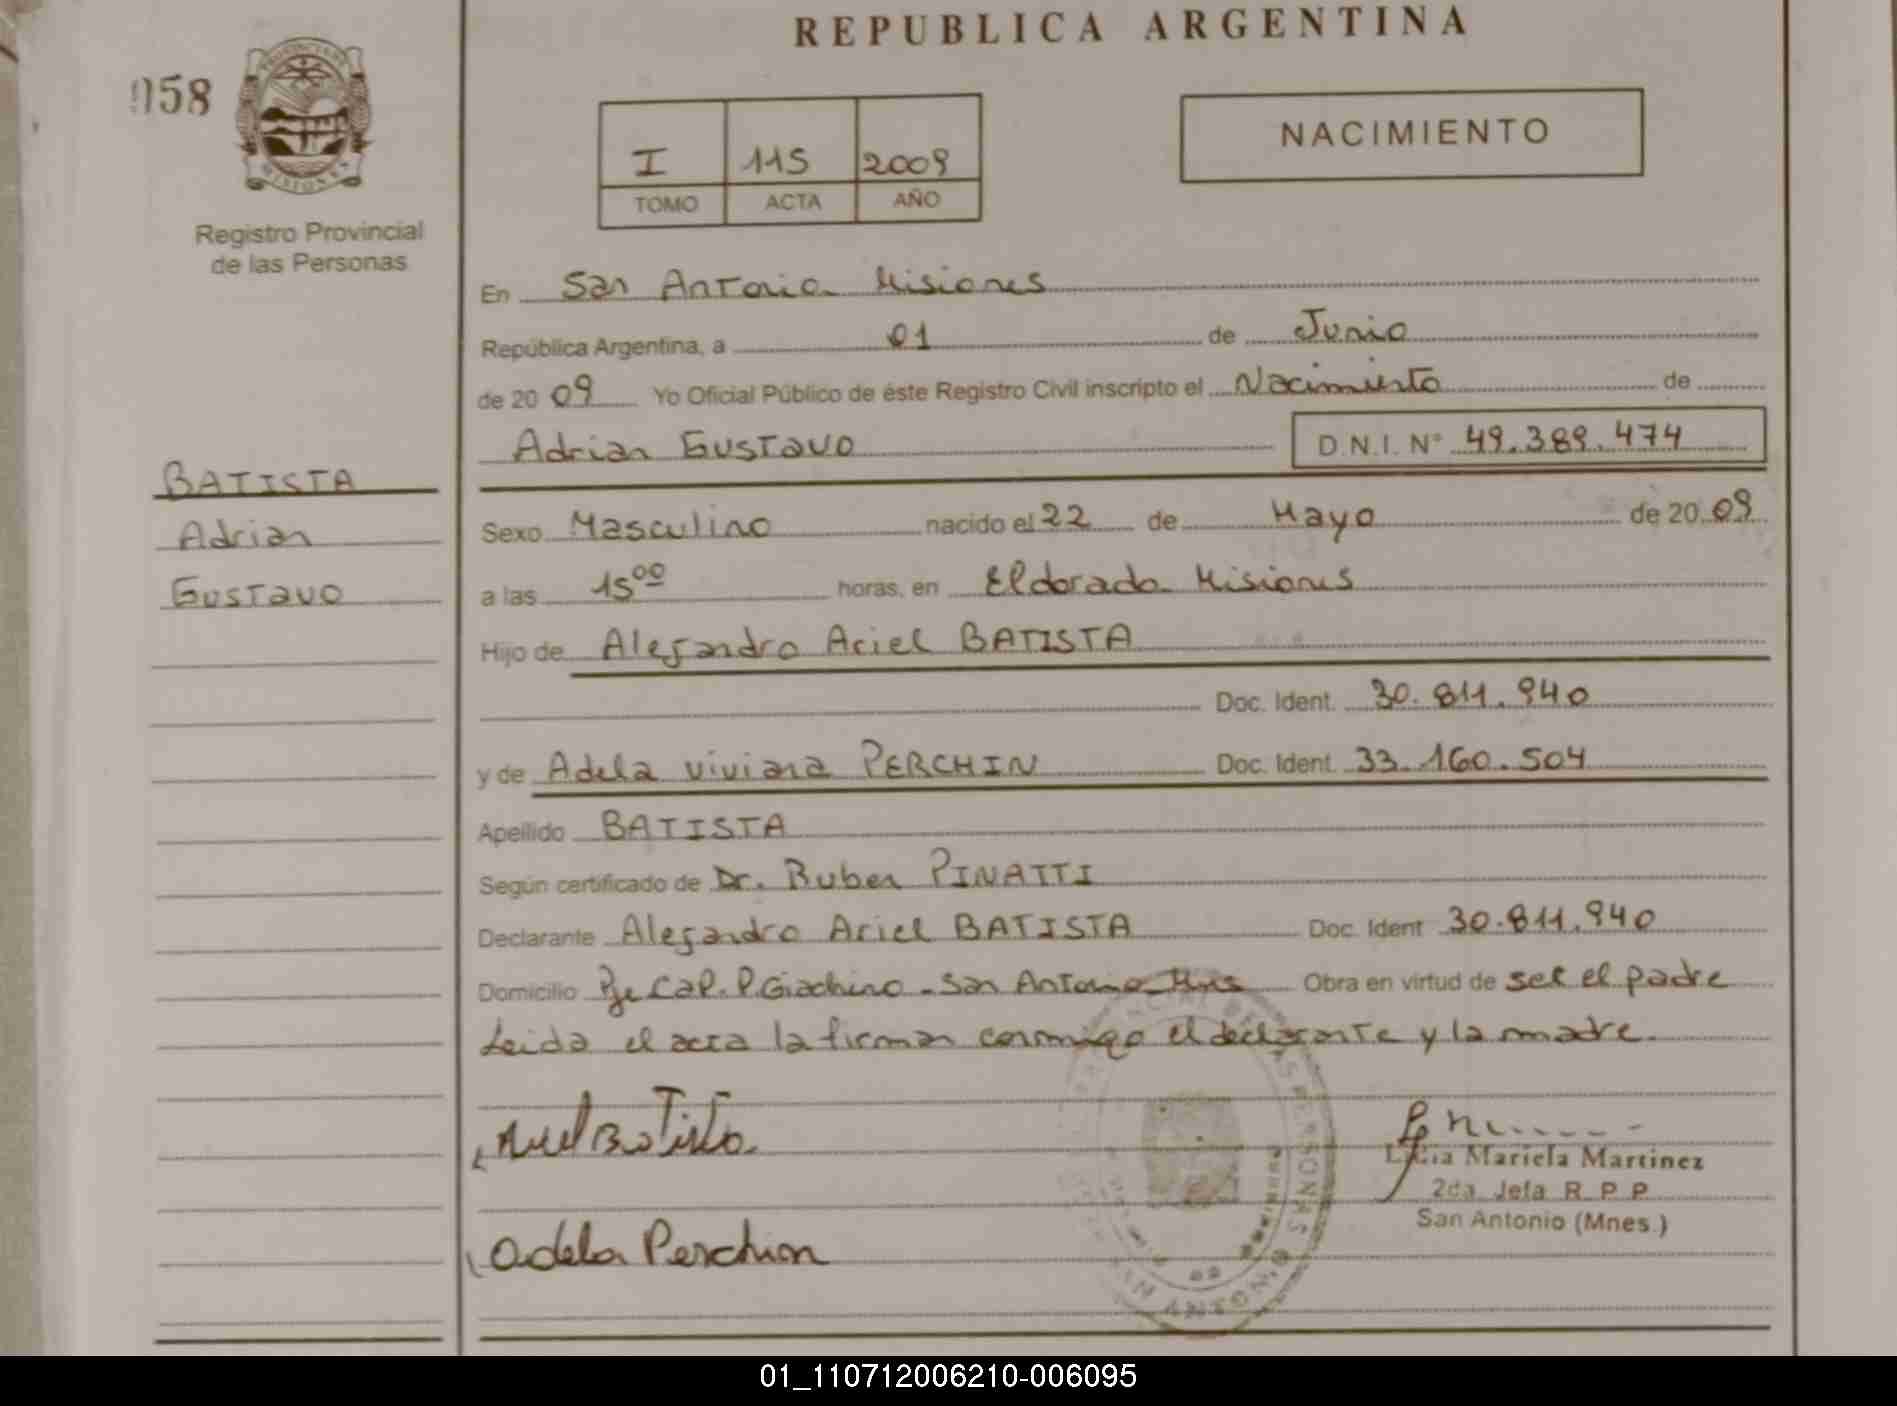 REPUBLICA ARGENTINA
058
PROVINCIA DE
MISIONES
Registro Provincial
de las Personas
I 115 2009
TOMO ACTA AÑO
NACIMIENTO
En San Antonio Misiones
República Argentina, a 01 de Junio
de 20 09 Yo Oficial Público de éste Registro Civil inscripto el Nacimiento de
Adrian Gustavo D.N.I. N° 49.389.474
BATISTA
Adrian
Gustavo
Sexo Masculino nacido el 22 de Mayo de 20 09
a las 15 00 horas, en Eldorado Misiones
Hijo de Alejandro Ariel BATISTA
Doc. Ident. 30.811.940
y de Adela Viviana PERCHIN Doc. Ident. 33.160.504
Apellido BATISTA
Según certificado de Dr. Ruben PINATTI
Declarante Alejandro Ariel BATISTA Doc. Ident 30.811.940
Domicilio Pje Cap. P. Giachino - San Antonio - Mnes Obra en virtud de ser el padre
Leida el acta la firman conmigo el declarante y la madre.
Ariel Batista
Adela Perchin
Mariela Martinez
2da. Jefa R. P. P.
San Antonio (Mnes.)
SAN ANTONIO
01_110712006210-006095